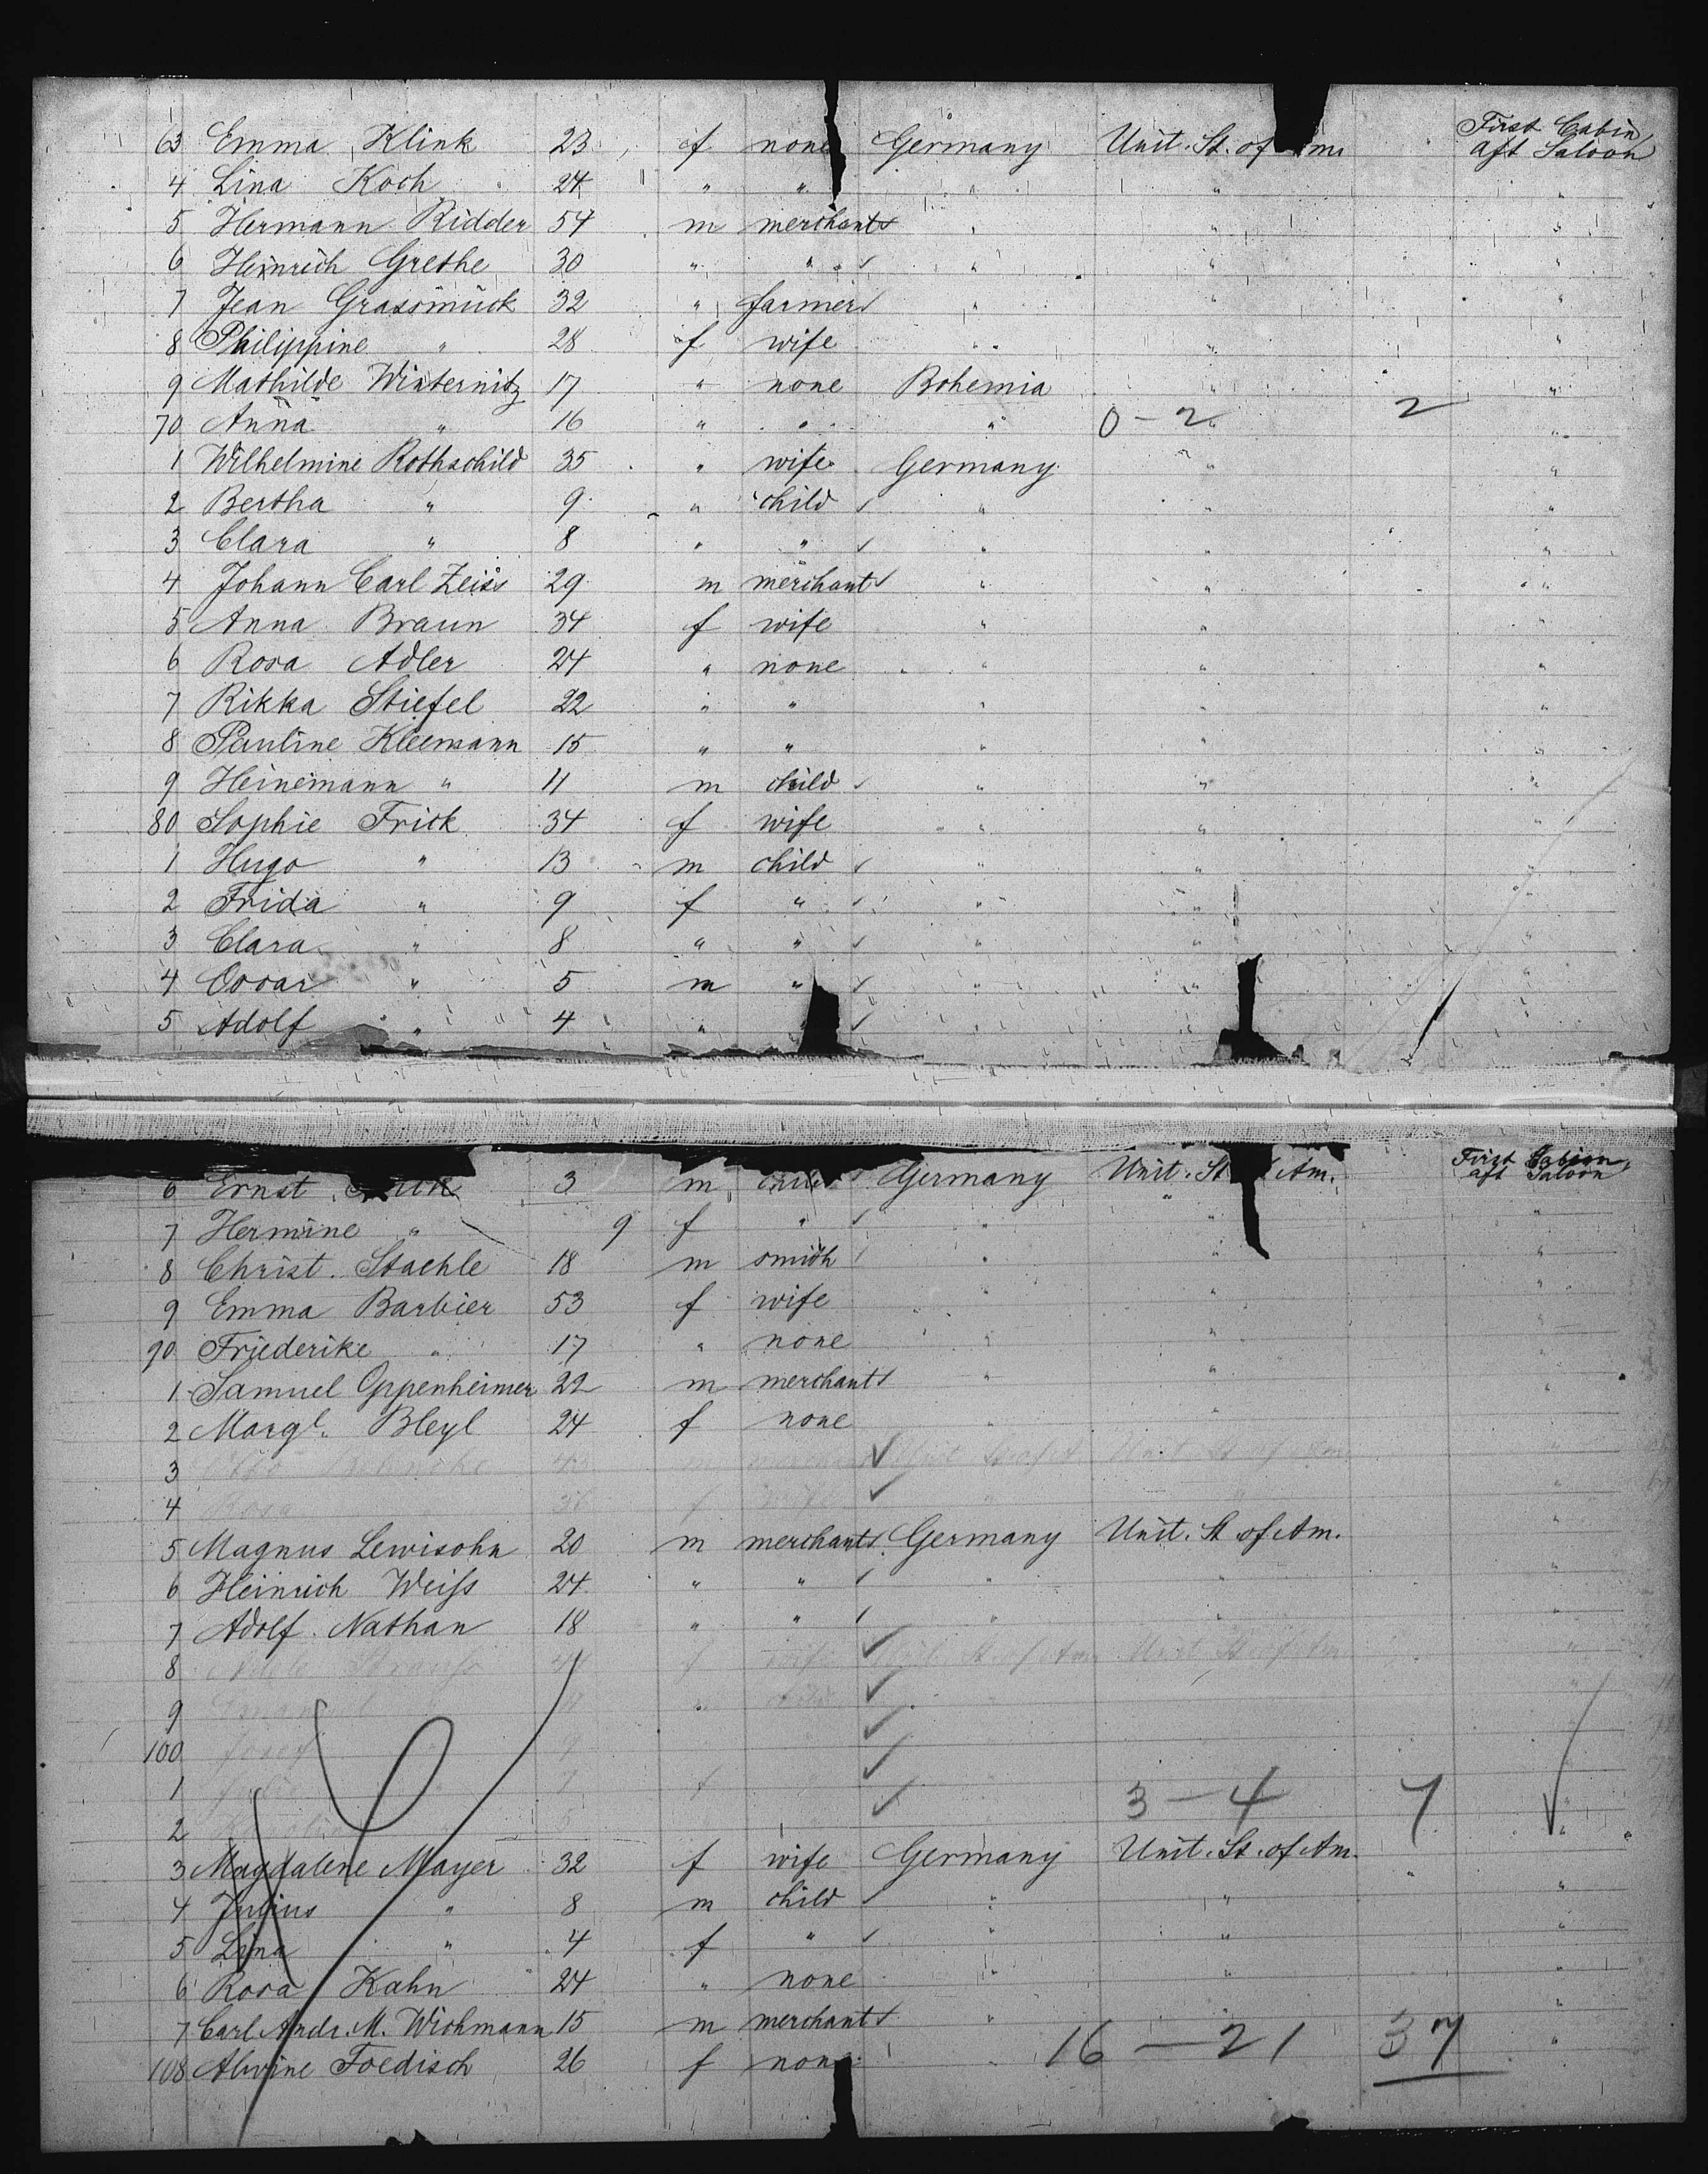 First Cabin,
63 Emma Klink 23 f none Germany Unit. St. of Am. aft Saloon
4 Lina Koch 24 " " " " "
5 Hermann Ridder 54 m merchant " " "
6 Heinrich Grethe 30 " " " " "
7 Jean Grassmück 32 " farmer " " "
8 Philippine " 28 f wife " " "
9 Mathilde Winternitz 17 " none Bohemia " "
70 Anna " 16 " " " 0 - 2 " 2 "
1 Wilhelmine Rothschild 35 " wife Germany " "
2 Bertha " 9 " child " " "
3 Clara " 8 " " " " "
4 Johann Carl Zeiss 29 m merchant " " "
5 Anna Braun 34 f wife " " "
6 Rosa Adler 24 " none " " "
7 Rikka Stiefel 22 " " " " "
8 Pauline Kleemann 15 " " " " "
9 Heinemann " 11 m child " " "
80 Sophie Frick 34 f wife " " "
1 Hugo " 13 m child " " "
2 Frida " 9 f " " " "
3 Clara " 8 " " " " "
4 Oscar " 5 m " " " "
5 Adolf " 4 " " " "
First Cabin,
6 Ernst 3 m child Germany Unit. St. Am. aft Saloon
7 Hermine " 9 f " " " "
8 Christ. Staehle 18 m smith " " "
9 Emma Barbier 53 f wife " " "
90 Friederike " 17 " none " " "
1 Samuel Oppenheimer 22 m merchant " " "
2 Margt. Bleyl 24 f none " " "
3 m merchant Unit. St. of Am "
4 Rosa f wife " "
5 Magnus Lewisohn 20 m merchant Germany Unit. St. of Am. "
6 Heinrich Weiss 24 " " " " "
7 Adolf Nathan 18 " " " " "
8 Strauss f wife Unit. St. of Am Unit. St. of Am "
9 " child "
100 Josef 9 "
1 f 3 - 4 7 "
2 5 "
3 Magdalene Mayer 32 f wife Germany Unit. St. of Am. "
4 Julius " 8 m child " " "
5 Lina " 4 f " " " "
6 Rosa Kahn 24 " none " " "
7 Carl Andr. M. Wichmann 15 m merchant " "
108 Alwine Foedisch 26 f none " 16 - 21 37 "